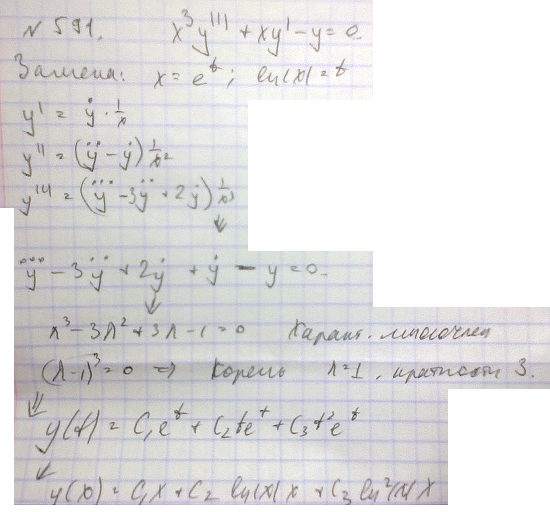 № 591. x³y''' + xy' - y = 0.
Замена: x = eᵗ; ln|x| = t
y' = ẏ · 1/x
y'' = (ÿ - ẏ) 1/x²
y''' = (y⃛ - 3ÿ + 2ẏ) 1/x³
⇓
y⃛ - 3ÿ + 2ẏ + ẏ - y = 0.
⇓
λ³ - 3λ² + 3λ - 1 = 0 Характ. многочлен
(λ-1)³ = 0 ⇒ Корень λ=1, кратности 3.
⇓
y(t) = C₁eᵗ + C₂teᵗ + C₃t²eᵗ
⇓
y(x) = C₁x + C₂ ln|x| x + C₃ ln²|x| x